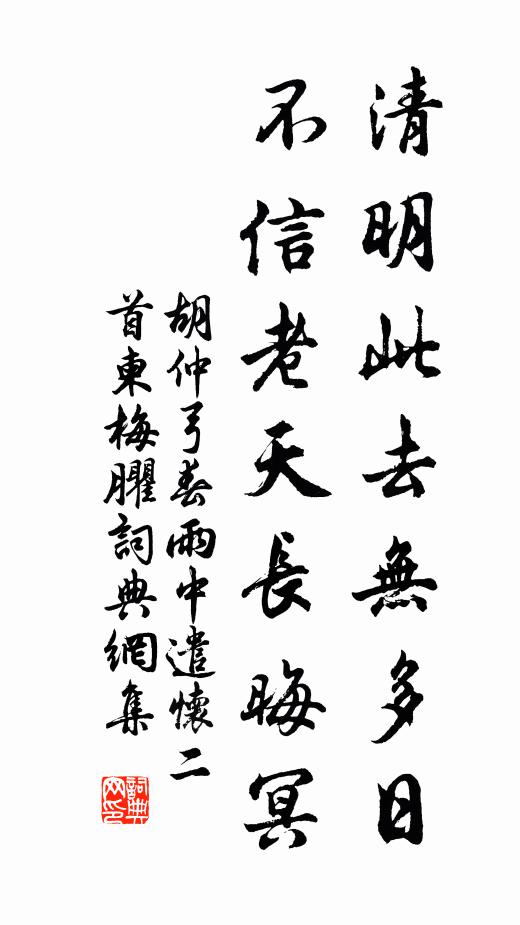 清明此去無多日
不信老天長晦冥
胡仲弓春雨中遣懷二
首東梅臞詞典網集
詞典
网印